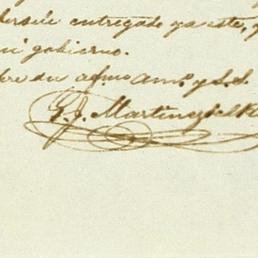 entregado ya este, y
mi gobierno.
de su afmo amo. y s.s.
E. J. Martinez del R